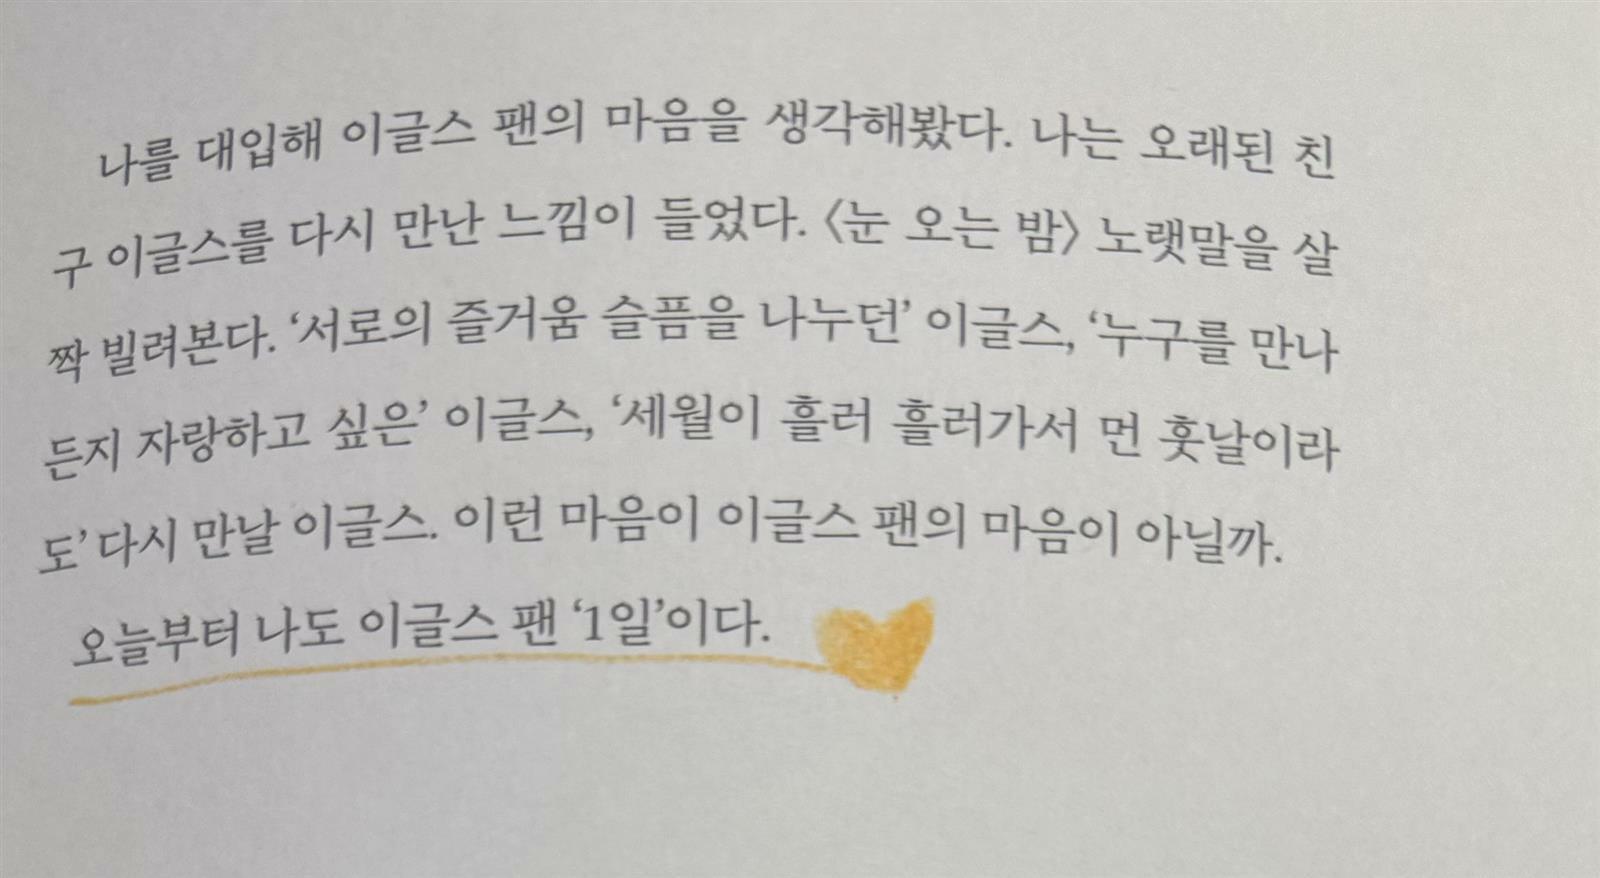 나를 대입해 이글스 팬의 마음을 생각해봤다. 나는 오래된 친
구 이글스를 다시 만난 느낌이 들었다. 〈눈 오는 밤〉 노랫말을 살
짝 빌려본다. ‘서로의 즐거움 슬픔을 나누던’ 이글스, ‘누구를 만나
든지 자랑하고 싶은’ 이글스, ‘세월이 흘러 흘러가서 먼 훗날이라
도’ 다시 만날 이글스. 이런 마음이 이글스 팬의 마음이 아닐까.
오늘부터 나도 이글스 팬 ‘1일’이다.